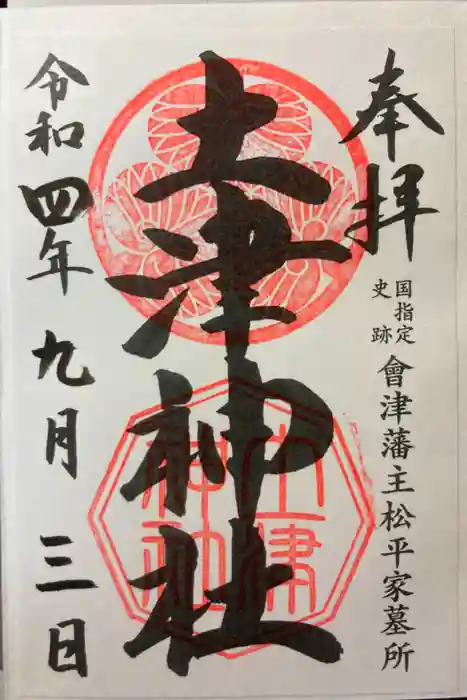 奉拝
国指定
史跡
會津藩主松平家墓所
土津神社
土津
神社
令和四年九月三日